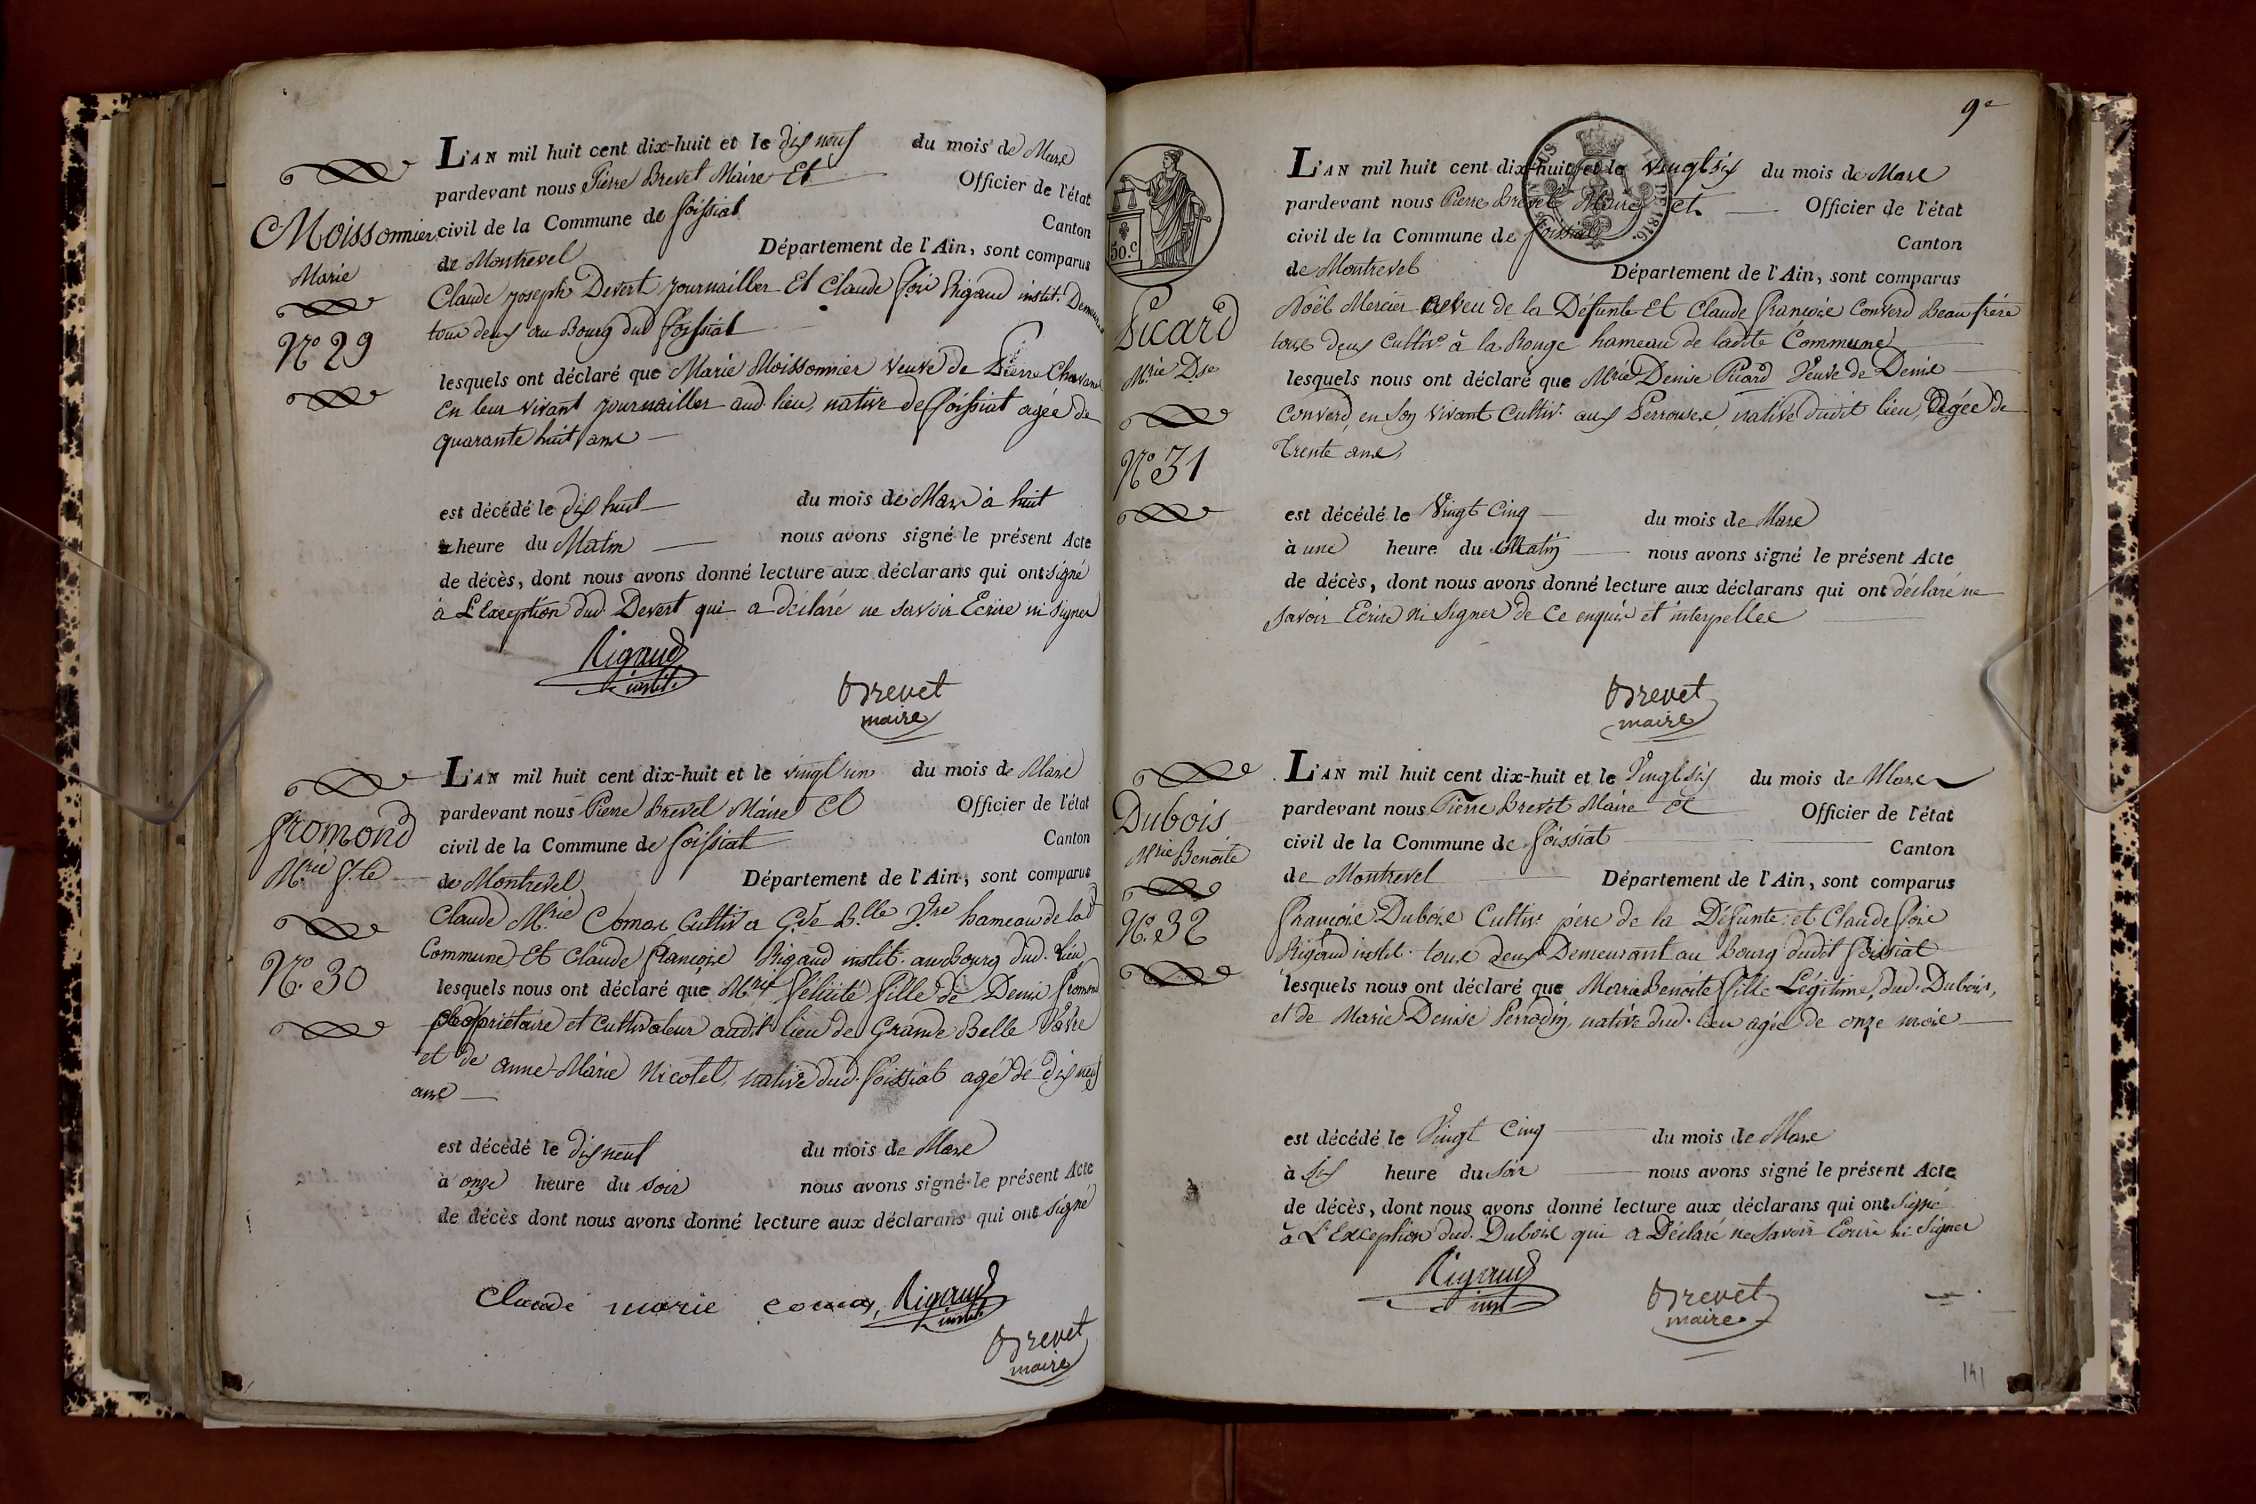 Moissonnier
Marie
N° 29
L'AN mil huit cent dix-huit et le dix neuf du mois de Mars
pardevant nous Pierre Brevet Maire Et Officier de l'état
civil de la Commune de foissiat Canton
de Montrevel Département de l'Ain, sont comparus
Claude joseph Devert journailler Et Claude Rigaud instit.
tous deux au Bourg dud foissiat
lesquels ont déclaré que Marie Moissonnier veuve de Pierre
en leur vivant journailler aud. lieu, native de foissiat agée de
quarante huit ans
est décédé le dix huit du mois de Mars à huit
heure du Matin nous avons signé le présent Acte
de décès, dont nous avons donné lecture aux déclarans qui ont signé
à L'exception dud. Devert qui a déclaré ne savoir Ecrire ni signer
Rigaud
instit.
Brevet
maire
fromond
M.rie f.te
N°. 30
L'AN mil huit cent dix-huit et le vingt un du mois de Mars
pardevant nous Pierre Brevet Maire Et Officier de l'état
civil de la Commune de foissiat Canton
de Montrevel Département de l'Ain, sont comparus
Claude M.rie Comas Cultiv a G.de B.lle V.re hameau de lad
Commune Et Claude françois Rigaud instit. au Bourg dud. lieu
lesquels nous ont déclaré que M.rie félicité fille de Denis fromond
propriétaire et cultivateur audit lieu de Grande Belle Vavre
et de anne Marie Nicolet, native dud. foissiat agé de dix neuf
ans
est décédé le dix neuf du mois de Mars
à onze heure du soir nous avons signé le présent Acte
de décès dont nous avons donné lecture aux déclarans qui ont signé
Claude marie comas, Rigaud
instit.
Brevet
maire
9e
50 c
DE 1816.
Picard
M.rie D.se
N° 31
L'AN mil huit cent dix-huit et le vingt six du mois de Mars
pardevant nous Pierre Brevet Maire et Officier de l'état
civil de la Commune de foissiat Canton
de Montrevel Département de l'Ain, sont comparus
Noël Mercier neveu de la Défunte Et Claude françois Converd Beau frère
tous deux cultiv.s à la Rouge hameau de ladite Commune
lesquels nous ont déclaré que M.rie Denise Picard Veuve de Denis
Converd, en son vivant Cultiv. aux Perrouses, native dudit lieu, Agée de
Trente ans,
est décédé le Vingt Cinq du mois de Mars
à une heure du Matin nous avons signé le présent Acte
de décès, dont nous avons donné lecture aux déclarans qui ont déclaré ne
savoir Ecrire ni signer de ce enquis et interpellés
Brevet
maire
Dubois
M.rie Benoite
N°. 32
L'AN mil huit cent dix-huit et le Vingt six du mois de Mars
pardevant nous Pierre Brevet Maire et Officier de l'état
civil de la Commune de foissiat Canton
de Montrevel Département de l'Ain, sont comparus
François Dubois Cultiv. père de la Défunte et Claude
Rigaud instit. tous deux Demeurant au Bourg dudit foissiat
lesquels nous ont déclaré que Marie Benoite fille Légitime, dud. Dubois,
et de Marie Denise Perrodin, native dud. lieu agée de onze mois
est décédé le Vingt Cinq du mois de Mars
à six heure du soir nous avons signé le présent Acte
de décès, dont nous avons donné lecture aux déclarans qui ont signé
à L'Exception dud. Dubois qui a Déclaré ne savoir Ecrire ni signer
Rigaud
inst
Brevet
maire
141